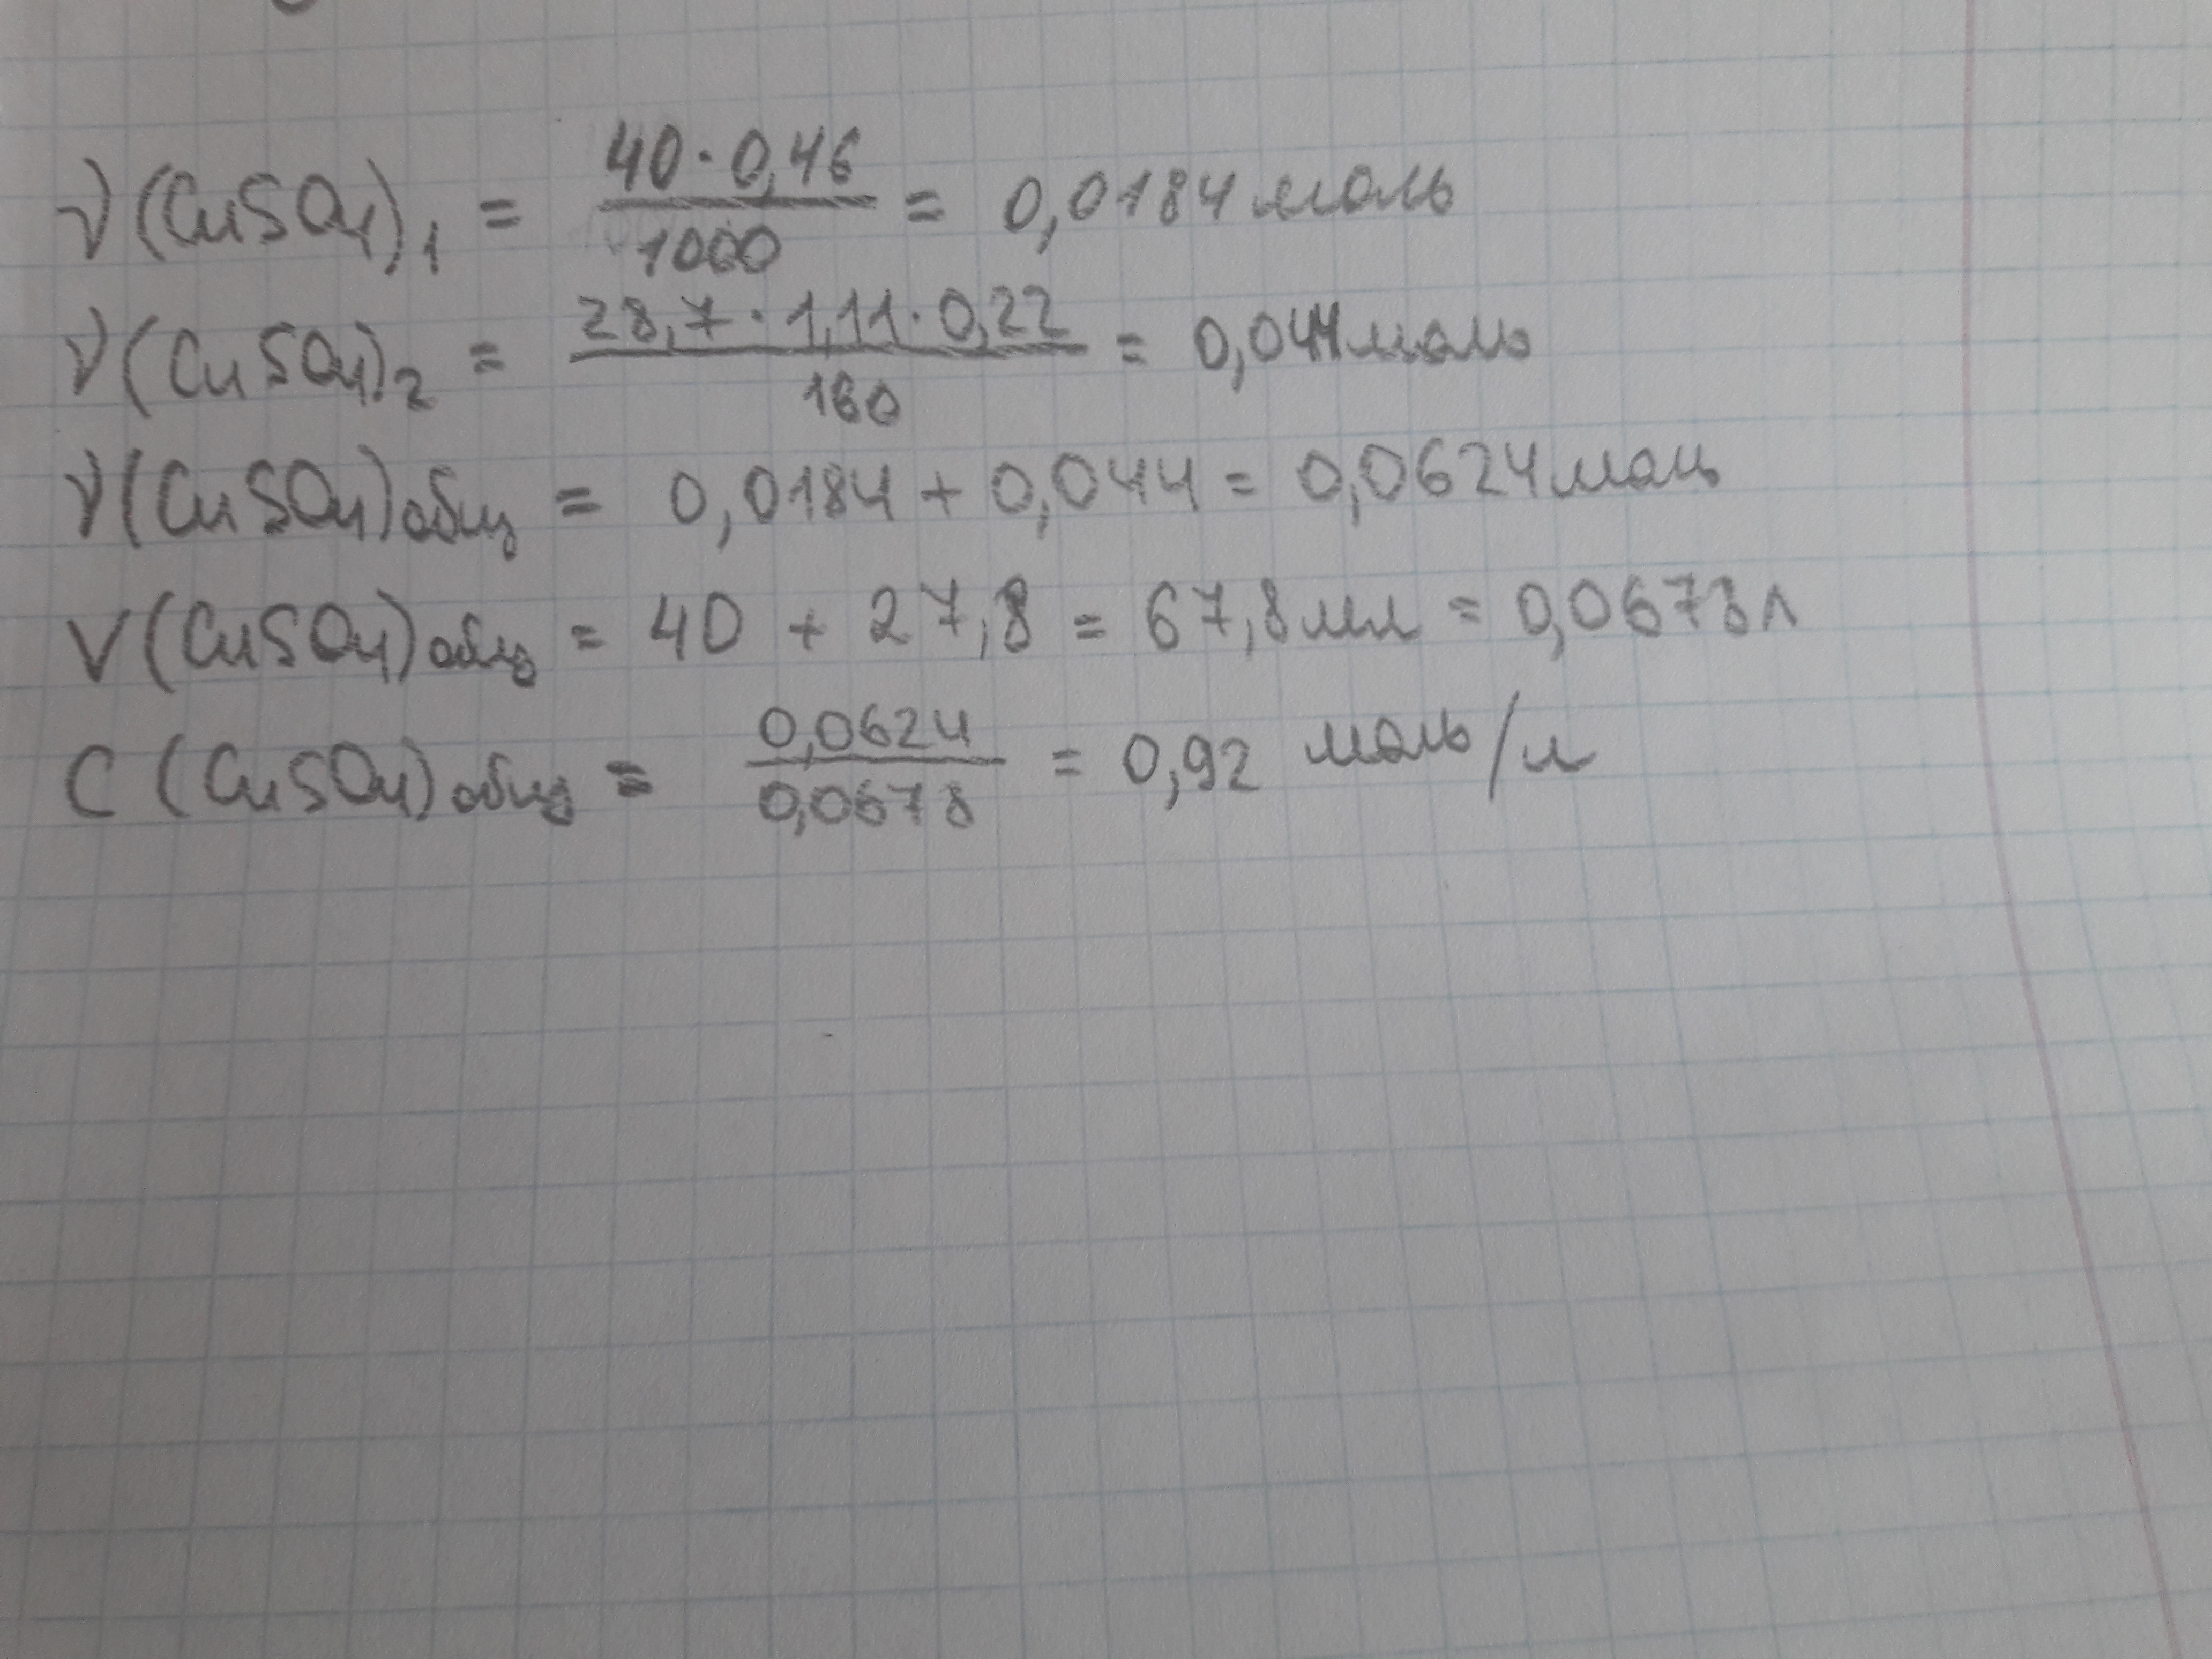 ν(CuSO4)1 = 40·0,46/1000 = 0,0184 моль
ν(CuSO4)2 = 28,7·1,11·0,22/160 = 0,044 моль
ν(CuSO4)общ = 0,0184 + 0,044 = 0,0624 моль
V(CuSO4)общ = 40 + 27,8 = 67,8 мл = 0,0678 л
C(CuSO4)общ = 0,0624/0,0678 = 0,92 моль/л